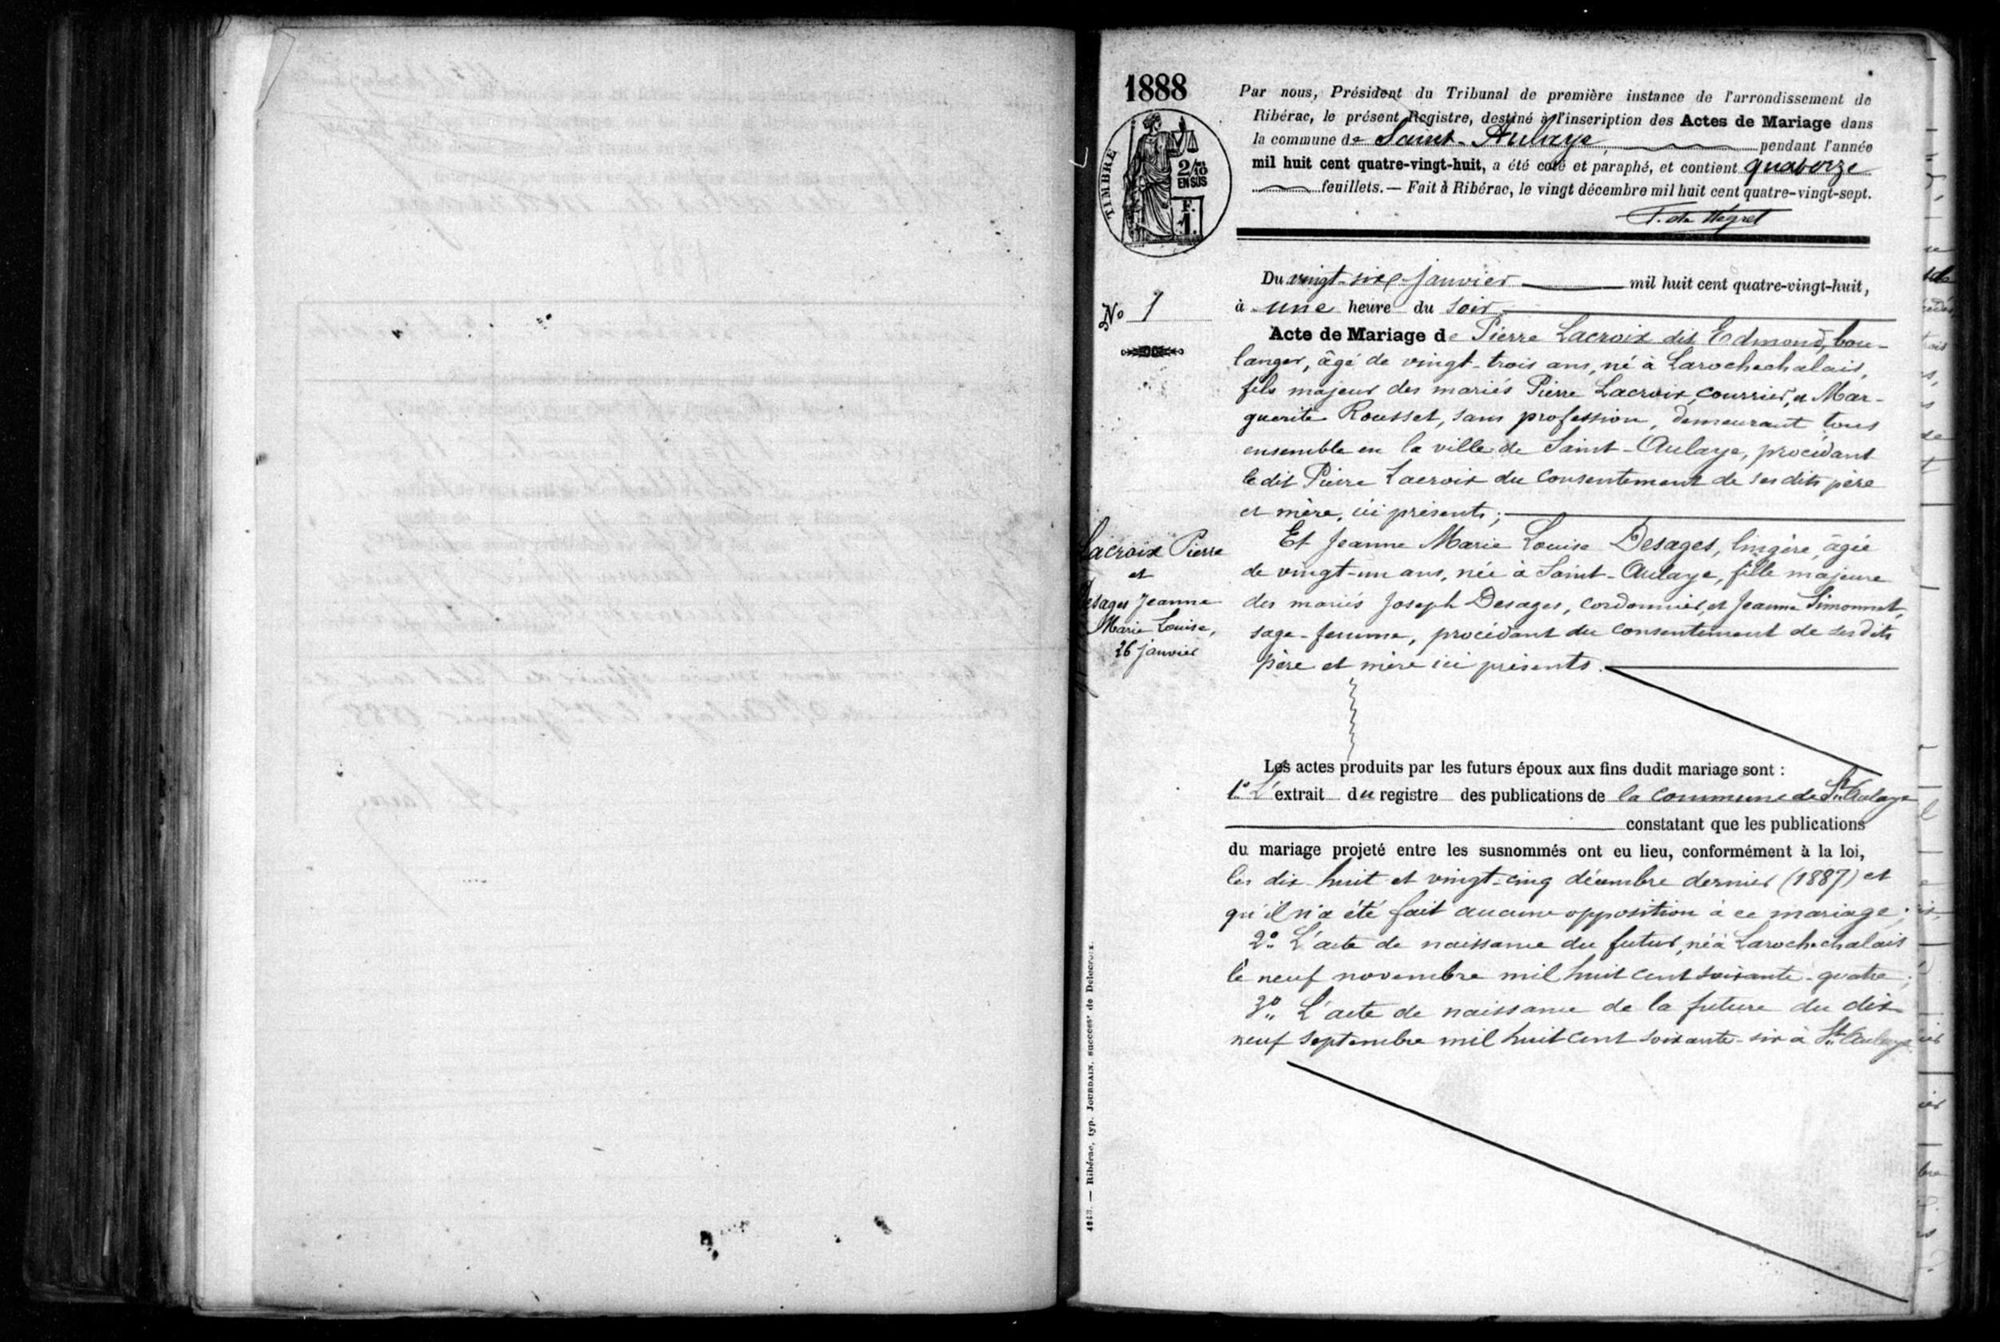 1888
TIMBRE
2/10
EN SUS
F.
1.
Par nous, Président du Tribunal de première instance de l'arrondissement de
Ribérac, le présent Registre, destiné à l'inscription des Actes de Mariage dans
la commune de Saint-Aulaye, pendant l'année
mil huit cent quatre-vingt-huit, a été coté et paraphé, et contient quatorze
feuillets. — Fait à Ribérac, le vingt décembre mil huit cent quatre-vingt-sept.
Du vingt-six janvier mil huit cent quatre-vingt-huit,
à une heure du soir.
No 1
Acte de Mariage de Pierre Lacroix dit Edmond, bou-
langer, âgé de vingt-trois ans, né à Larochechalais,
fils majeur des mariés Pierre Lacroix, courrier, et Mar-
guerite Rousset, sans profession, demeurant tous
ensemble en la ville de Saint-Aulaye, procédant
ledit Pierre Lacroix du consentement de ses dits père
et mère, ici présents;
Lacroix Pierre
et
Desages Jeanne
Marie Louise,
26 janvier
Et Jeanne Marie Louise Desages, lingère, âgée
de vingt-un ans, née à Saint-Aulaye, fille majeure
des mariés Joseph Desages, cordonnier, et Jeanne Simonnet,
sage-femme, procédant du consentement de ses dits
père et mère ici présents.
Les actes produits par les futurs époux aux fins dudit mariage sont :
1° L'extrait du registre des publications de la commune de St Aulaye
constatant que les publications
du mariage projeté entre les susnommés ont eu lieu, conformément à la loi,
les dix-huit et vingt-cinq décembre dernier (1887) et
qu'il n'a été fait aucune opposition à ce mariage;
2° L'acte de naissance du futur, né à Larochechalais
le neuf novembre mil huit cent soixante-quatre;
3° L'acte de naissance de la future du dix-
neuf septembre mil huit cent soixante-six à St Aulaye
— Ribérac, typ. JOURDAIN, success<sup>r</sup> de Delecroix.